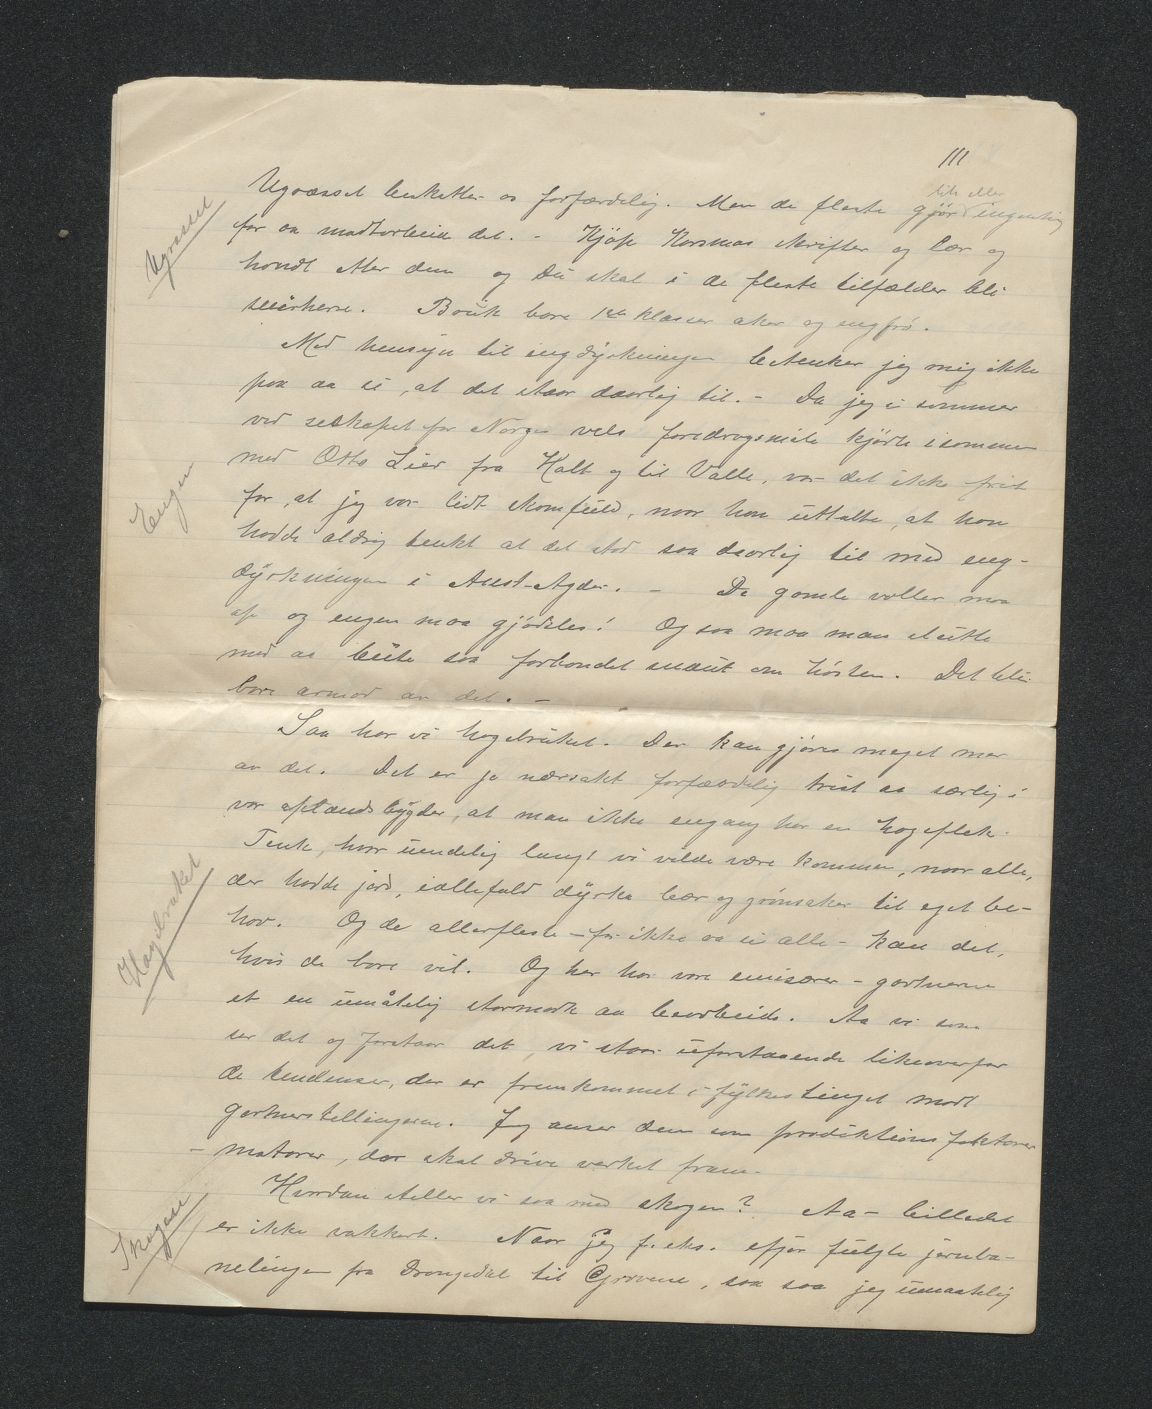 III
lite eller
Ugræsset beskatter os forfærdelig. Men de fleste gjør ingenting
Ugræsset
for aa motarbeide det. - Kjøp Korsmos skrifter og lær og
handl etter dem og du skal i de fleste tilfælder bli
seierherre. Bruk bare 1ste klasses aker og engfrø.
Med hensyn til engdyrkningen betenker jeg mig ikke
paa aa si, at det staar daarlig til. - Da jeg i sommer
ved selskapet for Norges vels foredragsmøte kjørte isommer
med Otto Lier fra Holt og til Valle, var det ikke frit
Engen
for, at jeg var lidt skamfuld, naar han uttalte, at han
hadde aldrig tenkt at det stod saa daarlig til med eng-
dyrkningen i Aust-Agder. - De gamle voller maa
op og engen maa gjødsles! Og saa maa man slutte
med aa beite saa forbandet snaut om høsten. Det blir
bare armod av det. -
Saa har vi hagebruket. Der kan gjøres meget mer
av det. Det er jo nærsakt forfærdelig trist aa særlig i
vor oplandsbygder, at man ikke engang har en hageflek.
Tenk, hvor uendelig langt vi vilde være kommen, naar alle,
Hagebruket
der hadde jord, iallefald dyrka bær og grønsaker til eget be-
hov. Og de allerfleste - for ikke aa si alle - kan det,
hvis de bare vil. Og her har vore emisærer - gartnerne
et en umåtelig stormark aa bearbeide. Aa vi som
ser det og forstaar det, vi staar uforstaaende likeoverfor
de tendenser, der er fremkommet i fylkestinget mot
gartnerstillingerne. Jeg anser dem som produktions faktorer
- motorer, der skal drive verket fram.
Hvordan steller vi saa med skogen? Aa - billedet
Skogen
er ikke vakkert. Naar jeg f. eks. ifjor fulgte jernba-
nelinjen fra Drangedal til Grovene, saa saa jeg umaatelig